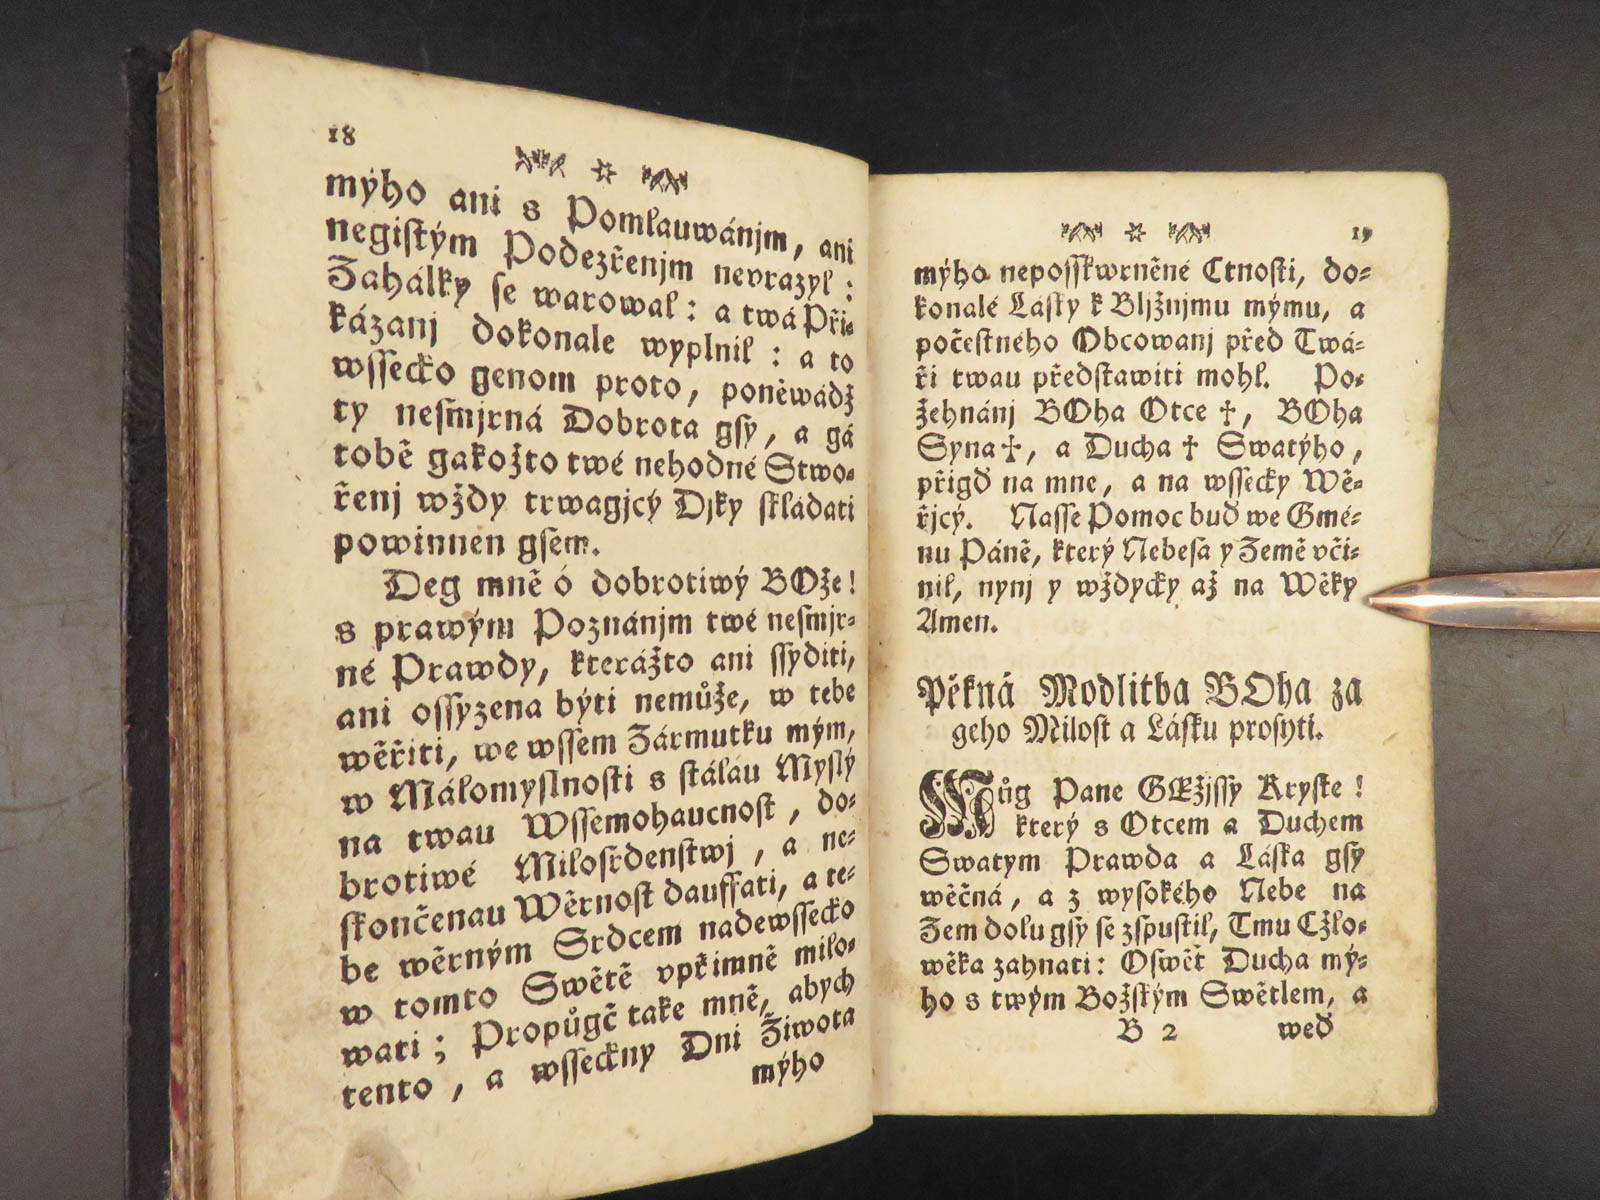 18
mýho ani s Pomlauwánjm, ani
negistým Podezřenjm nevrazyl:
Zahálky se warowal: a twá Při-
kázanj dokonale wyplnil: a to
wssecko genom proto, poněwádž
ty nesmjrná Dobrota gsy, a gá
tobě gakožto twé nehodné Stwo-
řenj wždy trwagjcý Djky skládati
powinnen gsem.
Deg mně ó dobrotiwý BOže!
s prawým Poznánjm twé nesmjr-
né Prawdy, kterážto ani ssyditi,
ani ossyzena býti nemůže, w tebe
wěřiti, we wssem Zármutku mým,
w Málomyslnosti s stálau Myslý
na twau Wssemohaucnost, do-
brotiwé Milosrdenstwj, a ne-
skončenau Wěrnost dauffati, a te-
be wěrným Srdcem nadewssecko
w tomto Swětě vpřimně milo-
wati; Propůgč take mně, abych
tento, a wsseckny Dni Žiwota
mýho
19
mýho neposskwrněné Ctnosti, do-
konalé Lásky k Bljžnjmu mýmu, a
počestného Obcowanj před Twá-
ři twau představiti mohl. Po-
žehnánj BOha Otce †, BOha
Syna †, a Ducha † Swatýho,
přigď na mne, a na wssecky Wě-
řjcý. Nasse Pomoc buď we Gmé-
nu Páně, který Nebesa y Země vči-
nil, nynj y wždycky až na Wěky
Amen.
Pěkná Modlitba BOha za
geho Milost a Lásku prosyti.
Můg Pane GEžjssy Kryste!
který s Otcem a Duchem
Swatym Prawda a Láska gsy
wěčná, a z wysokého Nebe na
Zem dolu gsy se zspustil, Tmu Cžlo-
wěka zahnati: Oswět Ducha mý-
ho s twým Božským Swětlem, a
B 2 weď